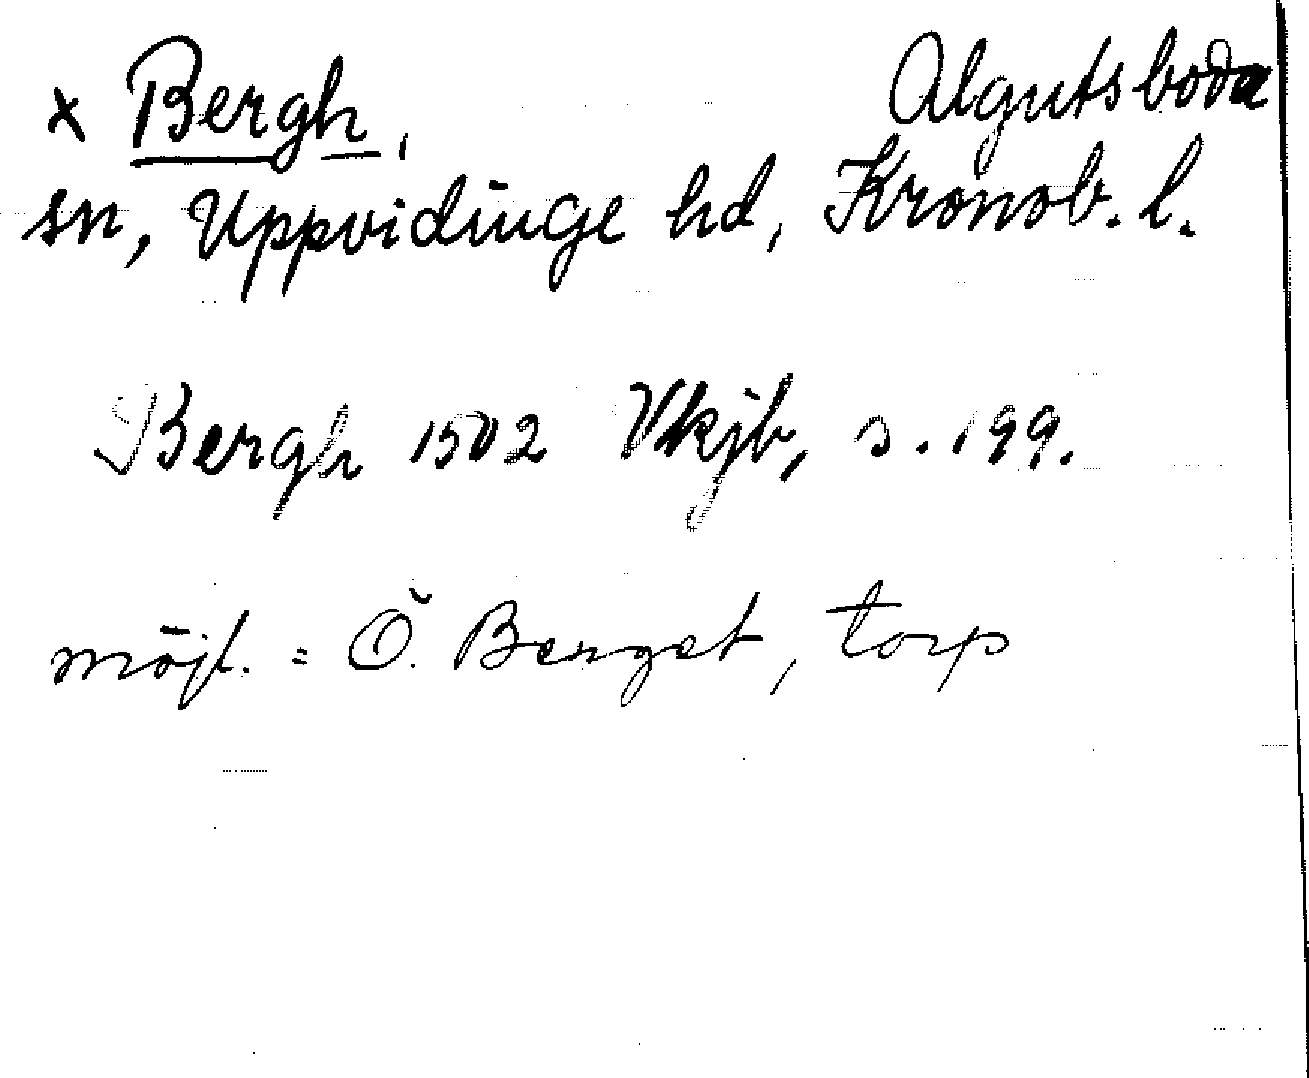 x Bergh, Algutsboda
sn, Uppvidinge hd, Kronob. l.
Bergh 1502 Vkjb, s. 199.
möjl. = Ö. Berget, torp